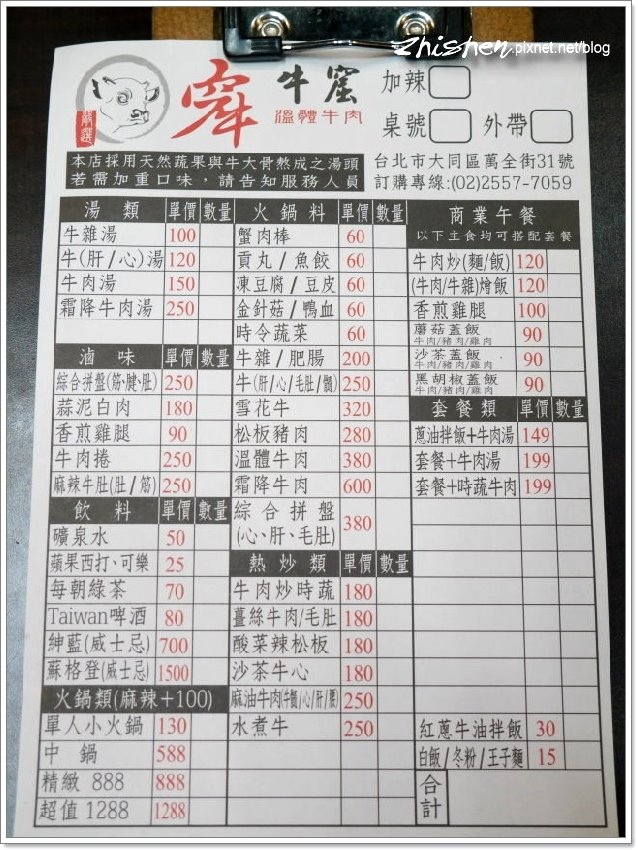 zhishen.pixnet.net/blog
嚴選
牛窟
溫體牛肉
加辣
桌號 外帶
本店採用天然蔬果與牛大骨熬成之湯頭
若需加重口味，請告知服務人員
台北市大同區萬全街31號
訂購專線:(02)2557-7059
湯類 單價 數量
牛雜湯 100
牛(肝/心)湯 120
牛肉湯 150
霜降牛肉湯 250
滷味 單價 數量
綜合拼盤(筋、腱、肚) 250
蒜泥白肉 180
香煎雞腿 90
牛肉捲 250
麻辣牛肚(肚/筋) 250
飲料 單價 數量
礦泉水 50
蘋果西打、可樂 25
每朝綠茶 70
Taiwan啤酒 80
紳藍(威士忌) 700
蘇格登(威士忌) 1500
火鍋類(麻辣+100)
單人小火鍋 130
中鍋 588
精緻 888 888
超值 1288 1288
火鍋料 單價 數量
蟹肉棒 60
貢丸/魚餃 60
凍豆腐/豆皮 60
金針菇/鴨血 60
時令蔬菜 60
牛雜/肥腸 200
牛(肝/心/毛肚/髓) 250
雪花牛 320
松板豬肉 280
溫體牛肉 380
霜降牛肉 600
綜合拼盤
(心、肝、毛肚) 380
熱炒類 單價 數量
牛肉炒時蔬 180
薑絲牛肉/毛肚 180
酸菜辣松板 180
沙茶牛心 180
麻油牛肉(牛髓/心/肝/腰) 250
水煮牛 250
商業午餐
以下主食均可搭配套餐
牛肉炒(麵/飯) 120
(牛肉/牛雜)燴飯 120
香煎雞腿 100
蘑菇蓋飯 90
牛肉/豬肉/雞肉
沙茶蓋飯 90
牛肉/豬肉/雞肉
黑胡椒蓋飯 90
牛肉/豬肉/雞肉
套餐類 單價 數量
蔥油拌飯+牛肉湯 149
套餐+牛肉湯 199
套餐+時蔬牛肉 199
紅蔥牛油拌飯 30
白飯/冬粉/王子麵 15
合計